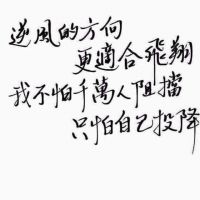 逆風的方向
更適合飛翔
我不怕千萬人阻擋
只怕自己投降